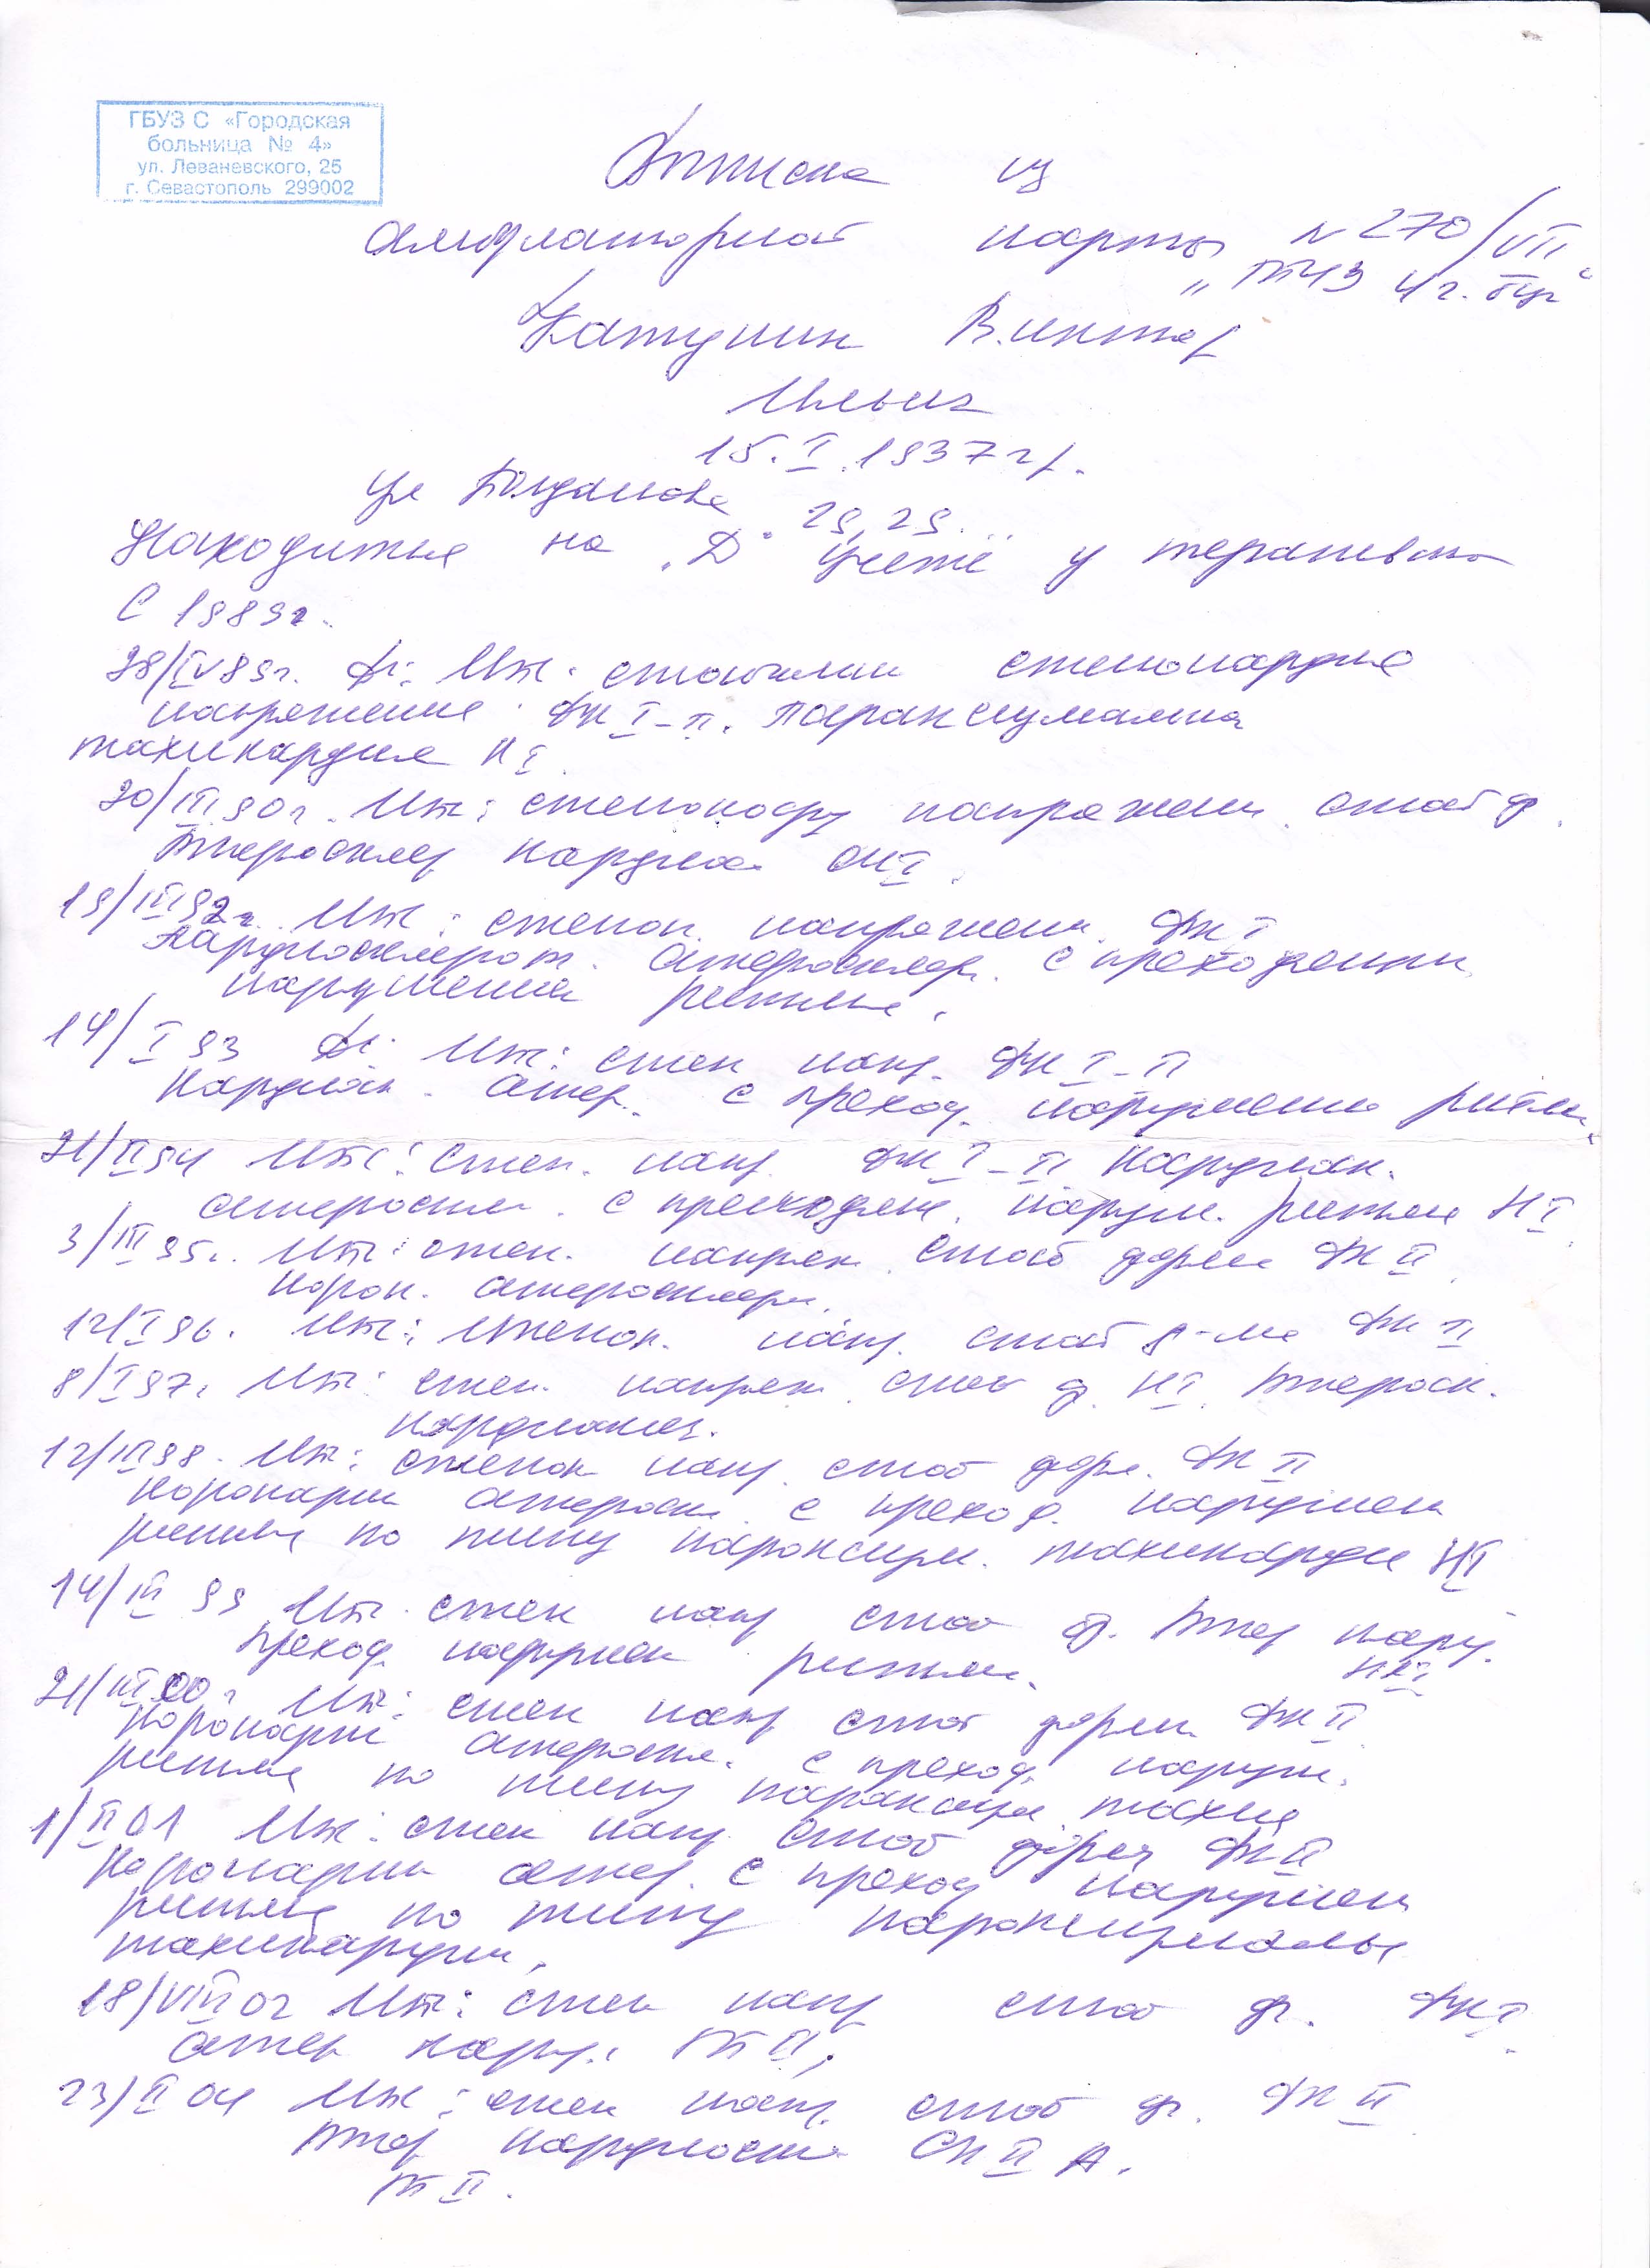 ГБУЗ С «Городская
больница № 4»
ул. Леваневского, 25
г. Севастополь 299002
Выписка из
амбулаторной карты N 270/VII
Виктор
Ильич
15.I.1937 г/.
ул Богданова 29, 29
Находится на "Д" учете у терапевта
С 1989г.
28/IV 89г. Ds: ИБС. стабильн стенокардия
напряжения ФК I-II. Пароксизмальная
тахикардия Н I
20/III 90г. ИБС: стенокард напряжен. стаб ф.
Атеросклер кардиоск СН I.
19/III 92г. ИБС: стенок. напряжен. ФК I
Кардиосклероз. атеросклер. с преходящим
нарушением ритма.
14/I 93 Ds: ИБС: стен напр. ФК I-II
Кардиоск. атер. с преход. нарушением ритма
21/II 94 ИБС: Стен. напр. ФК I-II Кардиоск.
атероскл. с преходящ. наруш. ритма Н I.
3/III 95г. ИБС: стен. напряж. стаб форма ФК II
Корон. атеросклероз.
12/I 96. ИБС: Стенок. напр. стаб ф-ма ФК II
8/I 97г. ИБС: стен. напряж. стаб ф. Н I. Атероск.
кардиоскл.
12/III 98. ИБС: стенок напр. стаб форм. ФК II
Коронарн атероскл. с преход. нарушен
ритма по типу пароксизм. тахикардии Н I
14/III 99 ИБС. стен напр стаб ф. Атер кард.
преход нарушен ритма. Н I
21/III 00г ИБС: стен напр стаб форм ФК II
Коронарн атероскл. с преход. наруш.
ритма по типу пароксизм тахик
1/II 01 ИБС: стен напр. стаб форм ФК II
Коронарн атер. с преход нарушен
ритма по типу пароксизмальн
тахикардии.
18/VIII 02 ИБС: стен напр стаб ф. ФК I.
Атер кард. ГБ II.
23/II 04 ИБС: стен напр. стаб ф. ФК II
Атер кардиоскл СН II А.
ГБ II.